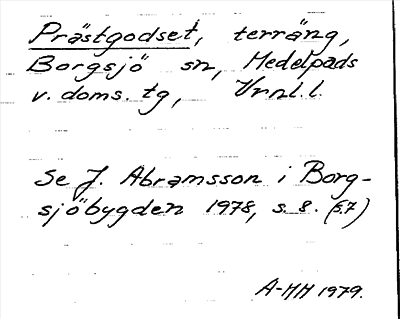 Prästgodset, terräng,
Borgsjö sn, Medelpads
v. doms. tg, Vrnl. l.
Se J. Abramsson i Borg-
sjöbygden 1978, s. 8. (s.7)
A-HH 1979.